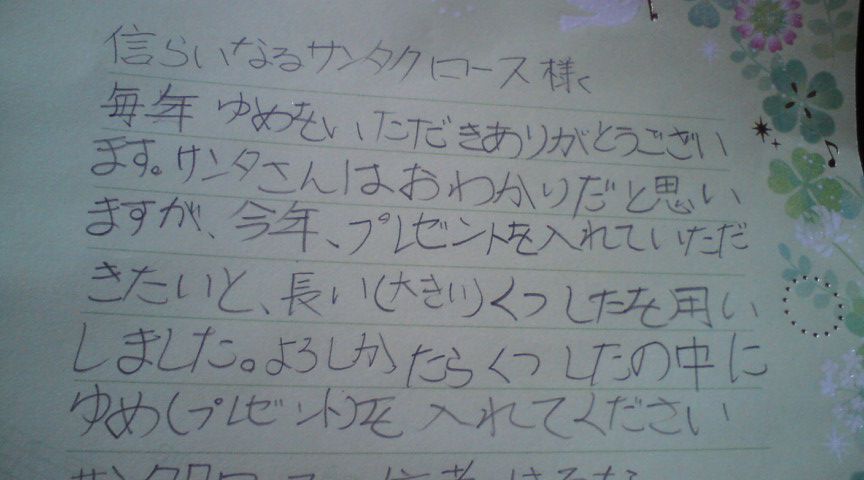 信らいなるサンタクロース様く
毎年 ゆめをいただきありがとうござい
ます。サンタさんはおわかりだと思い
ますが、今年、プレゼントを入れていただ
きたいと、長い(大きい)くつしたを用い
しました。よろしかたらくつしたの中に
ゆめ(プレゼント)を入れてください